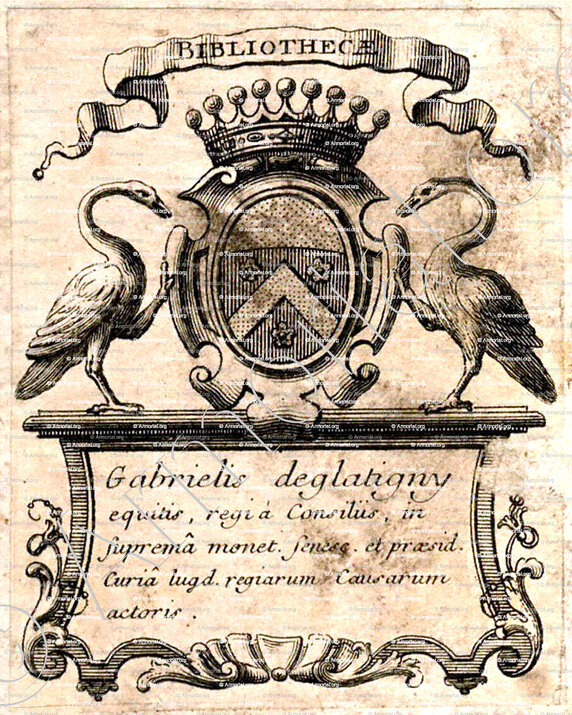 BIBLIOTHECÆ
Gabrielis deglatigny
equitis, regi á Consiliis, in
supremâ monet. senesc. et præsid.
Curiâ lugd. regiarum Causarum
actoris.
© Armorial.org